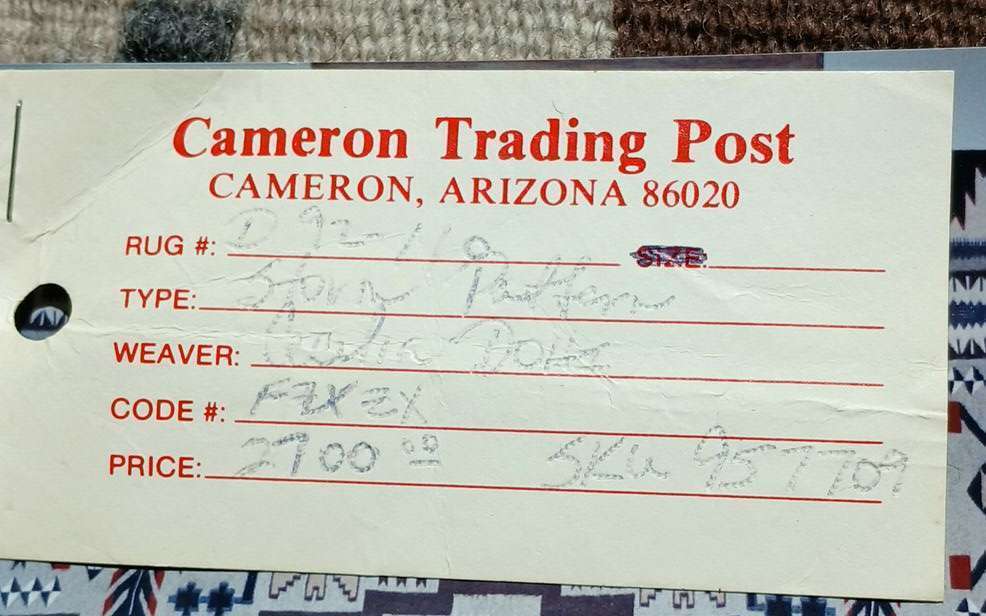 Cameron Trading Post
CAMERON, ARIZONA 86020
RUG #: D 92-110 SIZE:
TYPE: Storm Pattern
WEAVER:
CODE #: FZXZX
PRICE: 2700 00 SKU 957709